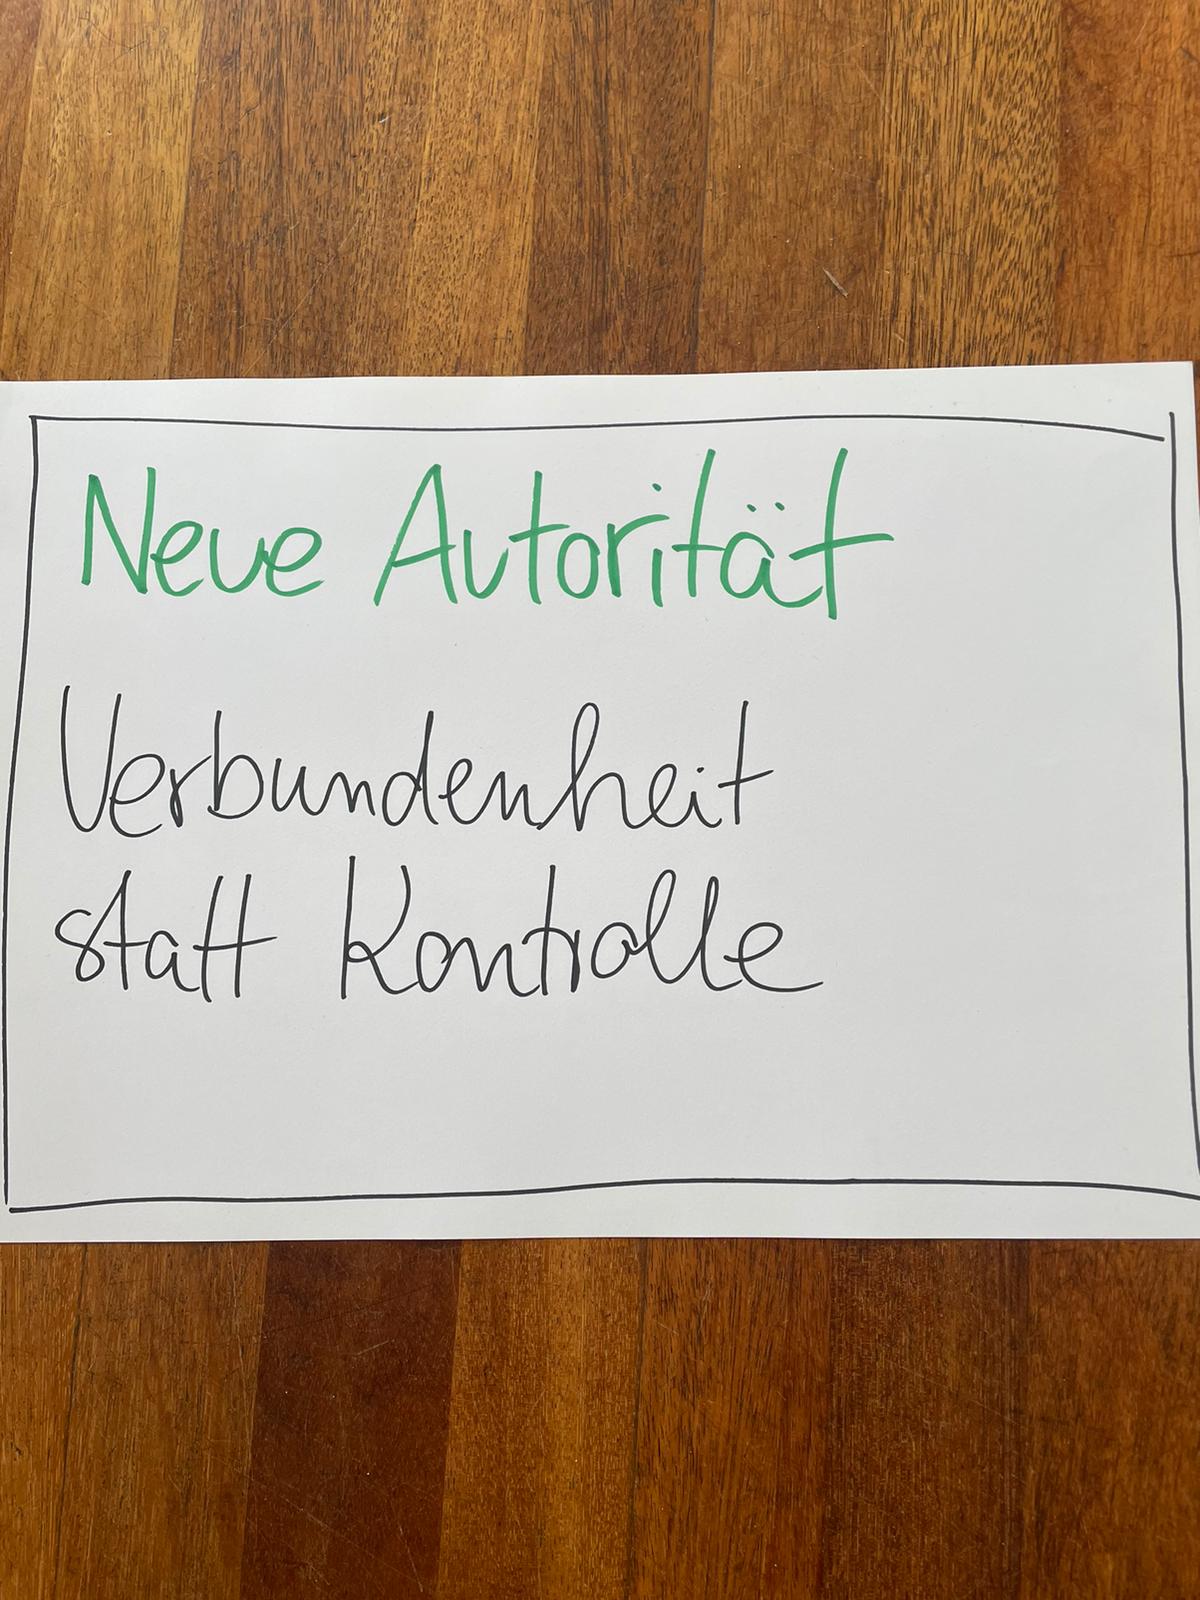 Neue Autorität
Verbundenheit
statt Kontrolle